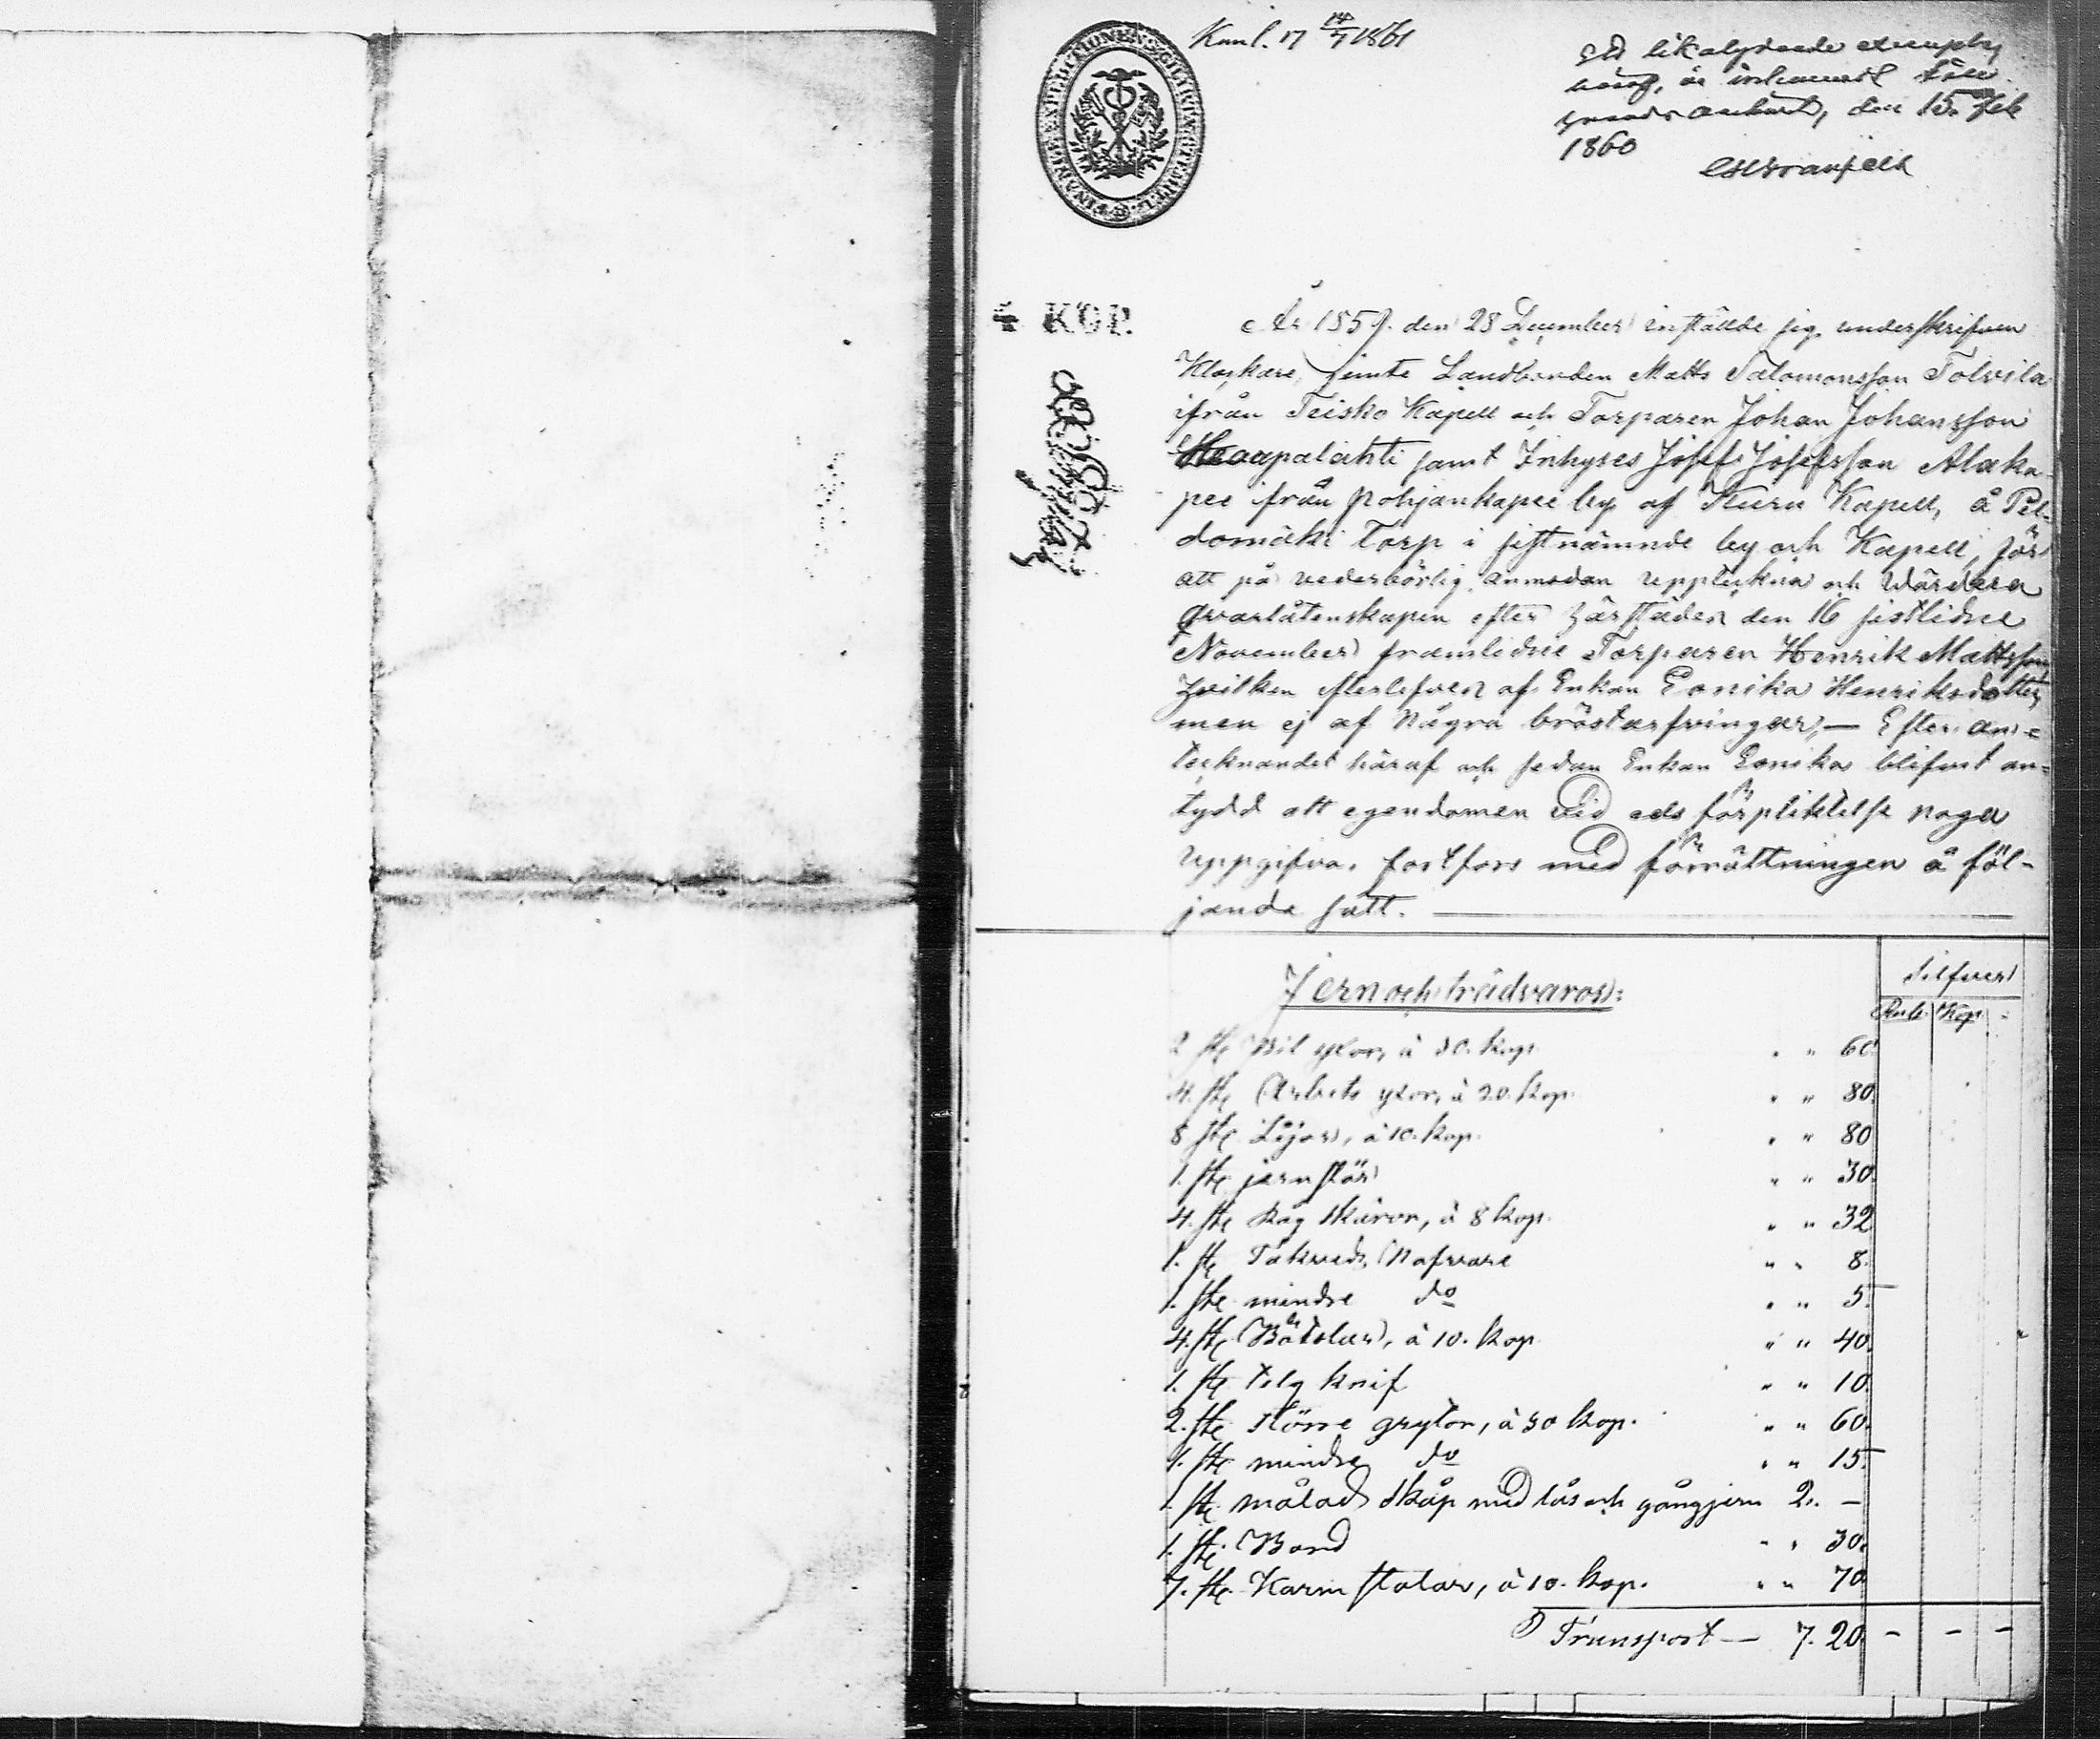 Kunl. 17 14/1 1861
Ett likalydande exemplar
häraf, är inlemnadt till
den 15. Feb
1860
4 KOP.
År 1859. den 28 December inställde sig underskrifven
Klockare, jemte Landbonden Matts Salomonsson Tolvila
ifrån Teisko Kapell och Torparen Johan Johansson
Haapalahti samt Inhyses Josef Josefsson Alaka-
pee ifrån Pohjankapee by af Kuru Kapell, å Pel-
domäki Torp i sistnämnde by och Kapell, för
att på vederbörlig anmodan uppteckna och värdera
qvarlåtenskapen efter härstädes den 16 sistlidne
November framlidne Torparen Henrik Mattsson,
hvilken efterlefves af Enkan Eonika Henriksdotter,
men ej af några bröstarfvingar; — Efter an-
tecknandet häraf och sedan Enkan Eonika blifvit an=
tydd att egendomen vid eds förpliktelse noga
uppgifva, fortfors med förrättningen å föl-
jande sätt. —
Silfver
Jern och trädvaror:
Rub. Kop.
2 st. Bil yxor, à 30. kop. " " 60.
4. st. Arbets yxor, à 20. kop. " " 80.
8 st. Lijor, à 10. kop. " " 80
1. st. jernstör " " 30.
4. st. Råg skäror, à 8 kop. " " 32
1. st. Takveds Nafvare " " 8.
1. st. mindre do " " 5.
4. st. Båtslar, à 10. kop " " 40.
1. st. telg knif " " 10.
2. st. större grytor, à 30 kop. " " 60.
1. st. mindre do " " 15.
1. st. målad skåp med lås och gångjern 2. —
1. st. Bord " " 30.
7. st. Karm stolar, à 10. kop. " " 70
Transport — 7. 20. - - -